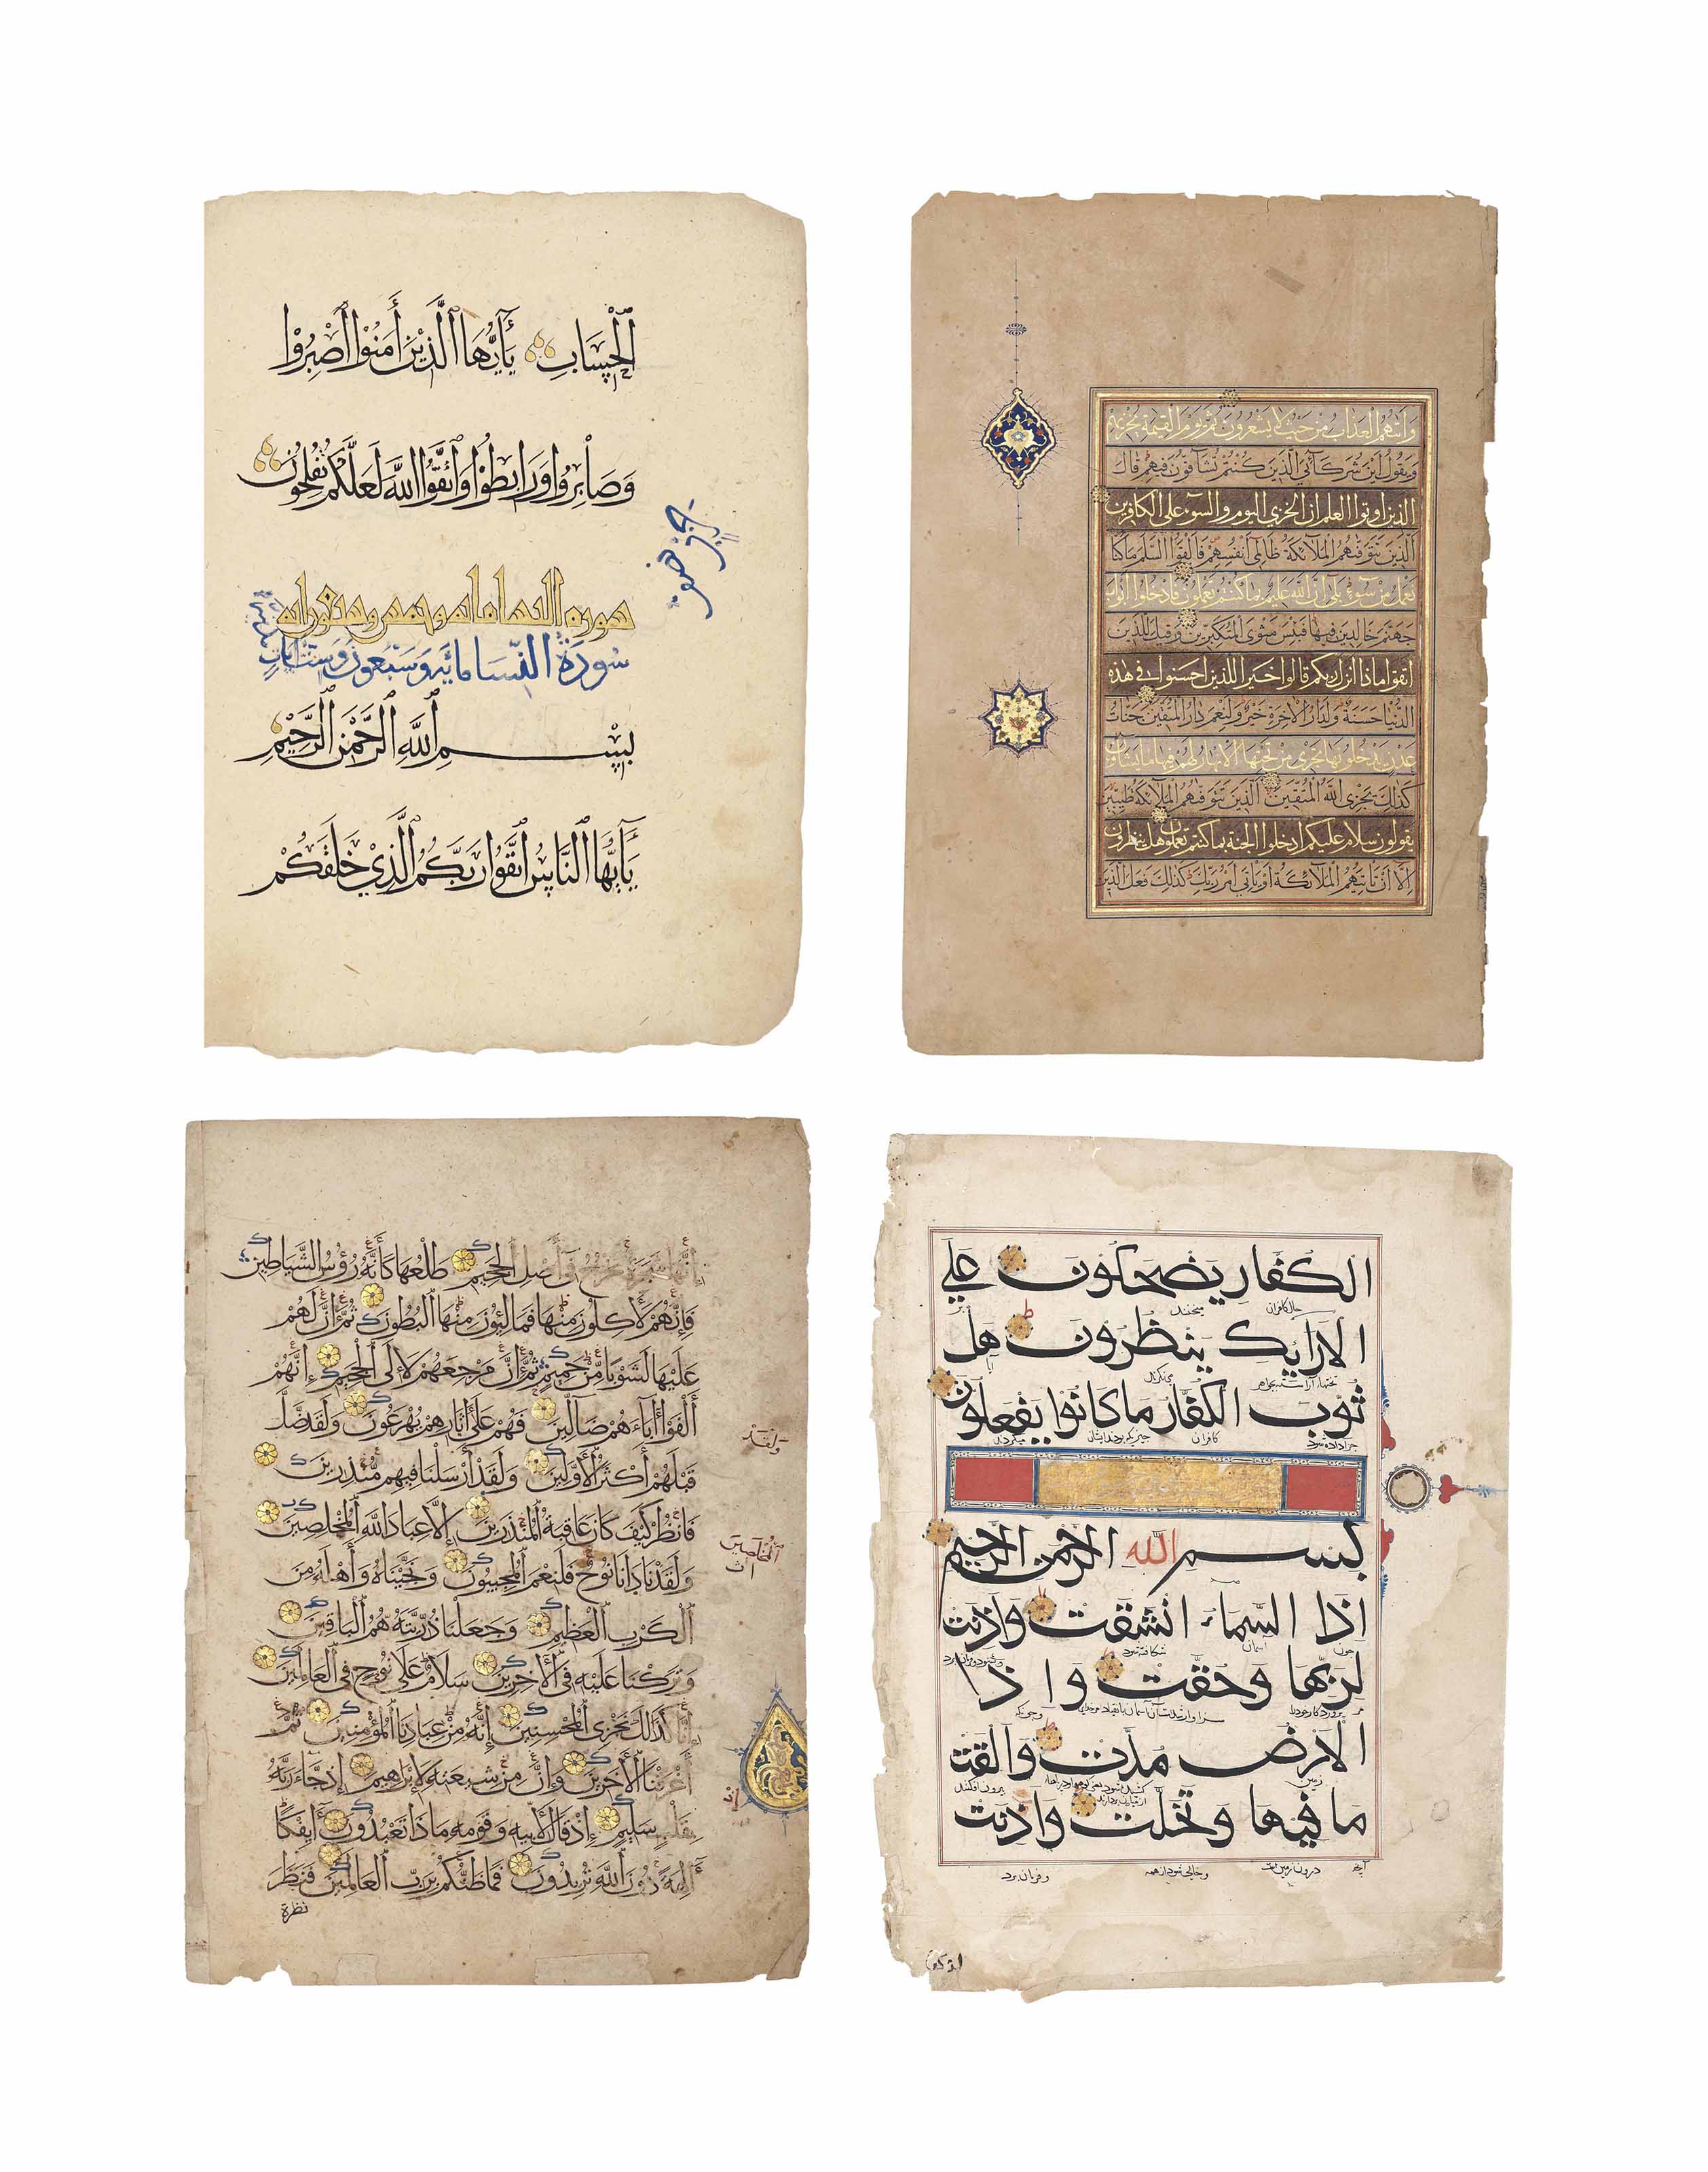 ٱلْحِسَابِ يَٰٓأَيُّهَا ٱلَّذِيْنَ أَمَنُوْا ٱصْبِرُوْا
وَصَابِرُوْا وَرَابِطُوْا وَٱتَّقُوْا اللَّهَ لَعَلَّكُمْ تُفْلِحُوْنَ
سوره النسا مائه و وست
سُورَةُ النِّسَا مائة وَسَبْعُونَ وَسِتّ اٰيَاتٍ
بِسْمِ ٱللَّهِ ٱلرَّحْمَٰنِ ٱلرَّحِيْمِ
يَٰٓأَيُّهَا ٱلنَّاسُ ٱتَّقُوْا رَبَّكُمُ ٱلَّذِيْ خَلَقَكُمْ
وَأَتٰهُمُ العَذَابُ مِنْ حَيْثُ لَا يَشْعُرُونَ ثُمَّ يَوْمَ القِيٰمَةِ يُخْزِيهِمْ
وَيَقُولُ أَيْنَ شُرَكَآئِيَ الَّذِينَ كُنْتُمْ تُشَآقُّونَ فِيهِمْ قَالَ
الذين اوتوا العلم ان الخزي اليوم والسوٓء على الكافرين
الَّذِينَ تَتَوَفّٰهُمُ المَلَآئِكَةُ ظَالِمِي أَنْفُسِهِمْ فَأَلْقَوُا السَّلَمَ مَا كُنَّا
نَعْمَلُ مِنْ سُوٓءٍ بَلَى إِنَّ اللّٰهَ عَلِيمٌ بِمَا كُنْتُمْ تَعْمَلُونَ فَادْخُلُوا أَبْوَابَ
جَهَنَّمَ خَالِدِينَ فِيهَا فَلَبِئْسَ مَثْوَى المُتَكَبِّرِينَ وَقِيلَ لِلَّذِينَ
اتقوا ماذا انزل ربكم قالوا خيرا للذين احسنوا في هذه
الدُّنْيَا حَسَنَةٌ وَلَدَارُ الْآخِرَةِ خَيْرٌ وَلَنِعْمَ دَارُ المُتَّقِينَ جَنَّاتُ
عَدْنٍ يَدْخُلُونَهَا تَجْرِي مِنْ تَحْتِهَا الْأَنْهَارُ لَهُمْ فِيهَا مَا يَشَاؤُنَ
كَذٰلِكَ يَجْزِي اللّٰهُ المُتَّقِينَ الَّذِينَ تَتَوَفّٰهُمُ المَلَآئِكَةُ طَيِّبِينَ
يقولون سلام عليكم ادخلوا الجنة بما كنتم تعملون هل ينظرون
إِلَّا أَنْ تَأْتِيَهُمُ المَلَآئِكَةُ أَوْ يَأْتِيَ أَمْرُ رَبِّكَ كَذٰلِكَ فَعَلَ الَّذِينَ
إِنَّهَا شَجَرَةٌ تَخْرُجُ فِي أَصْلِ ٱلْجَحِيمِ طَلْعُهَا كَأَنَّهُ رُؤُسُ الشَّيَاطِينِ
فَإِنَّهُمْ لَأٰكِلُونَ مِنْهَا فَمَالِئُونَ مِنْهَا ٱلْبُطُونَ ثُمَّ إِنَّ لَهُمْ
عَلَيْهَا لَشَوْبًا مِّنْ حَمِيمٍ ثُمَّ إِنَّ مَرْجِعَهُمْ لَإِلَى ٱلْجَحِيمِ إِنَّهُمْ
أَلْفَوْا أٰبَآءَهُمْ ضَآلِّينَ فَهُمْ عَلَىٰ أٰثَارِهِمْ يُهْرَعُونَ وَلَقَدْ ضَلَّ
قَبْلَهُمْ أَكْثَرُ ٱلْأَوَّلِينَ وَلَقَدْ أَرْسَلْنَا فِيهِم مُّنْذِرِينَ
وَلَقَدْ
فَانْظُرْ كَيْفَ كَانَ عَاقِبَةُ ٱلْمُنْذَرِينَ إِلَّا عِبَادَ اللَّهِ ٱلْمُخْلَصِينَ
ٱلْمُخْلَصِينَ
وَلَقَدْ نَادَانَا نُوحٌ فَلَنِعْمَ ٱلْمُجِيبُونَ وَنَجَّيْنَاهُ وَأَهْلَهُ مِنَ
ٱلْكَرْبِ ٱلْعَظِيمِ وَجَعَلْنَا ذُرِّيَّتَهُ هُمُ الْبَاقِينَ
وَتَرَكْنَا عَلَيْهِ فِي ٱلْأٰخِرِينَ سَلَامٌ عَلَىٰ نُوحٍ فِي ٱلْعَالَمِينَ
إِنَّا كَذَٰلِكَ نَجْزِي ٱلْمُحْسِنِينَ إِنَّهُ مِنْ عِبَادِنَا ٱلْمُؤْمِنِينَ ثُمَّ
أَغْرَقْنَا ٱلْأٰخَرِينَ وَإِنَّ مِنْ شِيعَتِهِ لَإِبْرَاهِيمَ إِذْ جَآءَ رَبَّهُ
بِقَلْبٍ سَلِيمٍ إِذْ قَالَ لِأَبِيهِ وَقَوْمِهِ مَاذَا تَعْبُدُونَ أَئِفْكًا
أٰلِهَةً دُونَ ٱللَّهِ تُرِيدُونَ فَمَا ظَنُّكُمْ بِرَبِّ ٱلْعَالَمِينَ فَنَظَرَ
نظرة
الْكُفَّارِ يَضْحَكُونَ عَلَى
حال كافران میخندند بر
الْاَرَائِكِ يَنْظُرُونَ هَلْ
تختهاء آراسته
ثُوِّبَ الْكُفَّارُ مَا كَانُوا يَفْعَلُونَ
جزا داده شود كافران میكردند
بِسْمِ اللّٰه الرحمن الرحيم
اِذَا السَّمَاءُ انْشَقَّتْ وَاَذِنَتْ
چون آسمان شكافته شود
لِرَبِّهَا وَحُقَّتْ وَاِذَا
پروردگار خود را وچون كه
الْاَرْضُ مُدَّتْ وَاَلْقَتْ
زمین بیرون افكند
مَا فِيهَا وَتَخَلَّتْ وَاَذِنَتْ
آنچه درون زمین است وخالی شود از همه وفرمان برد